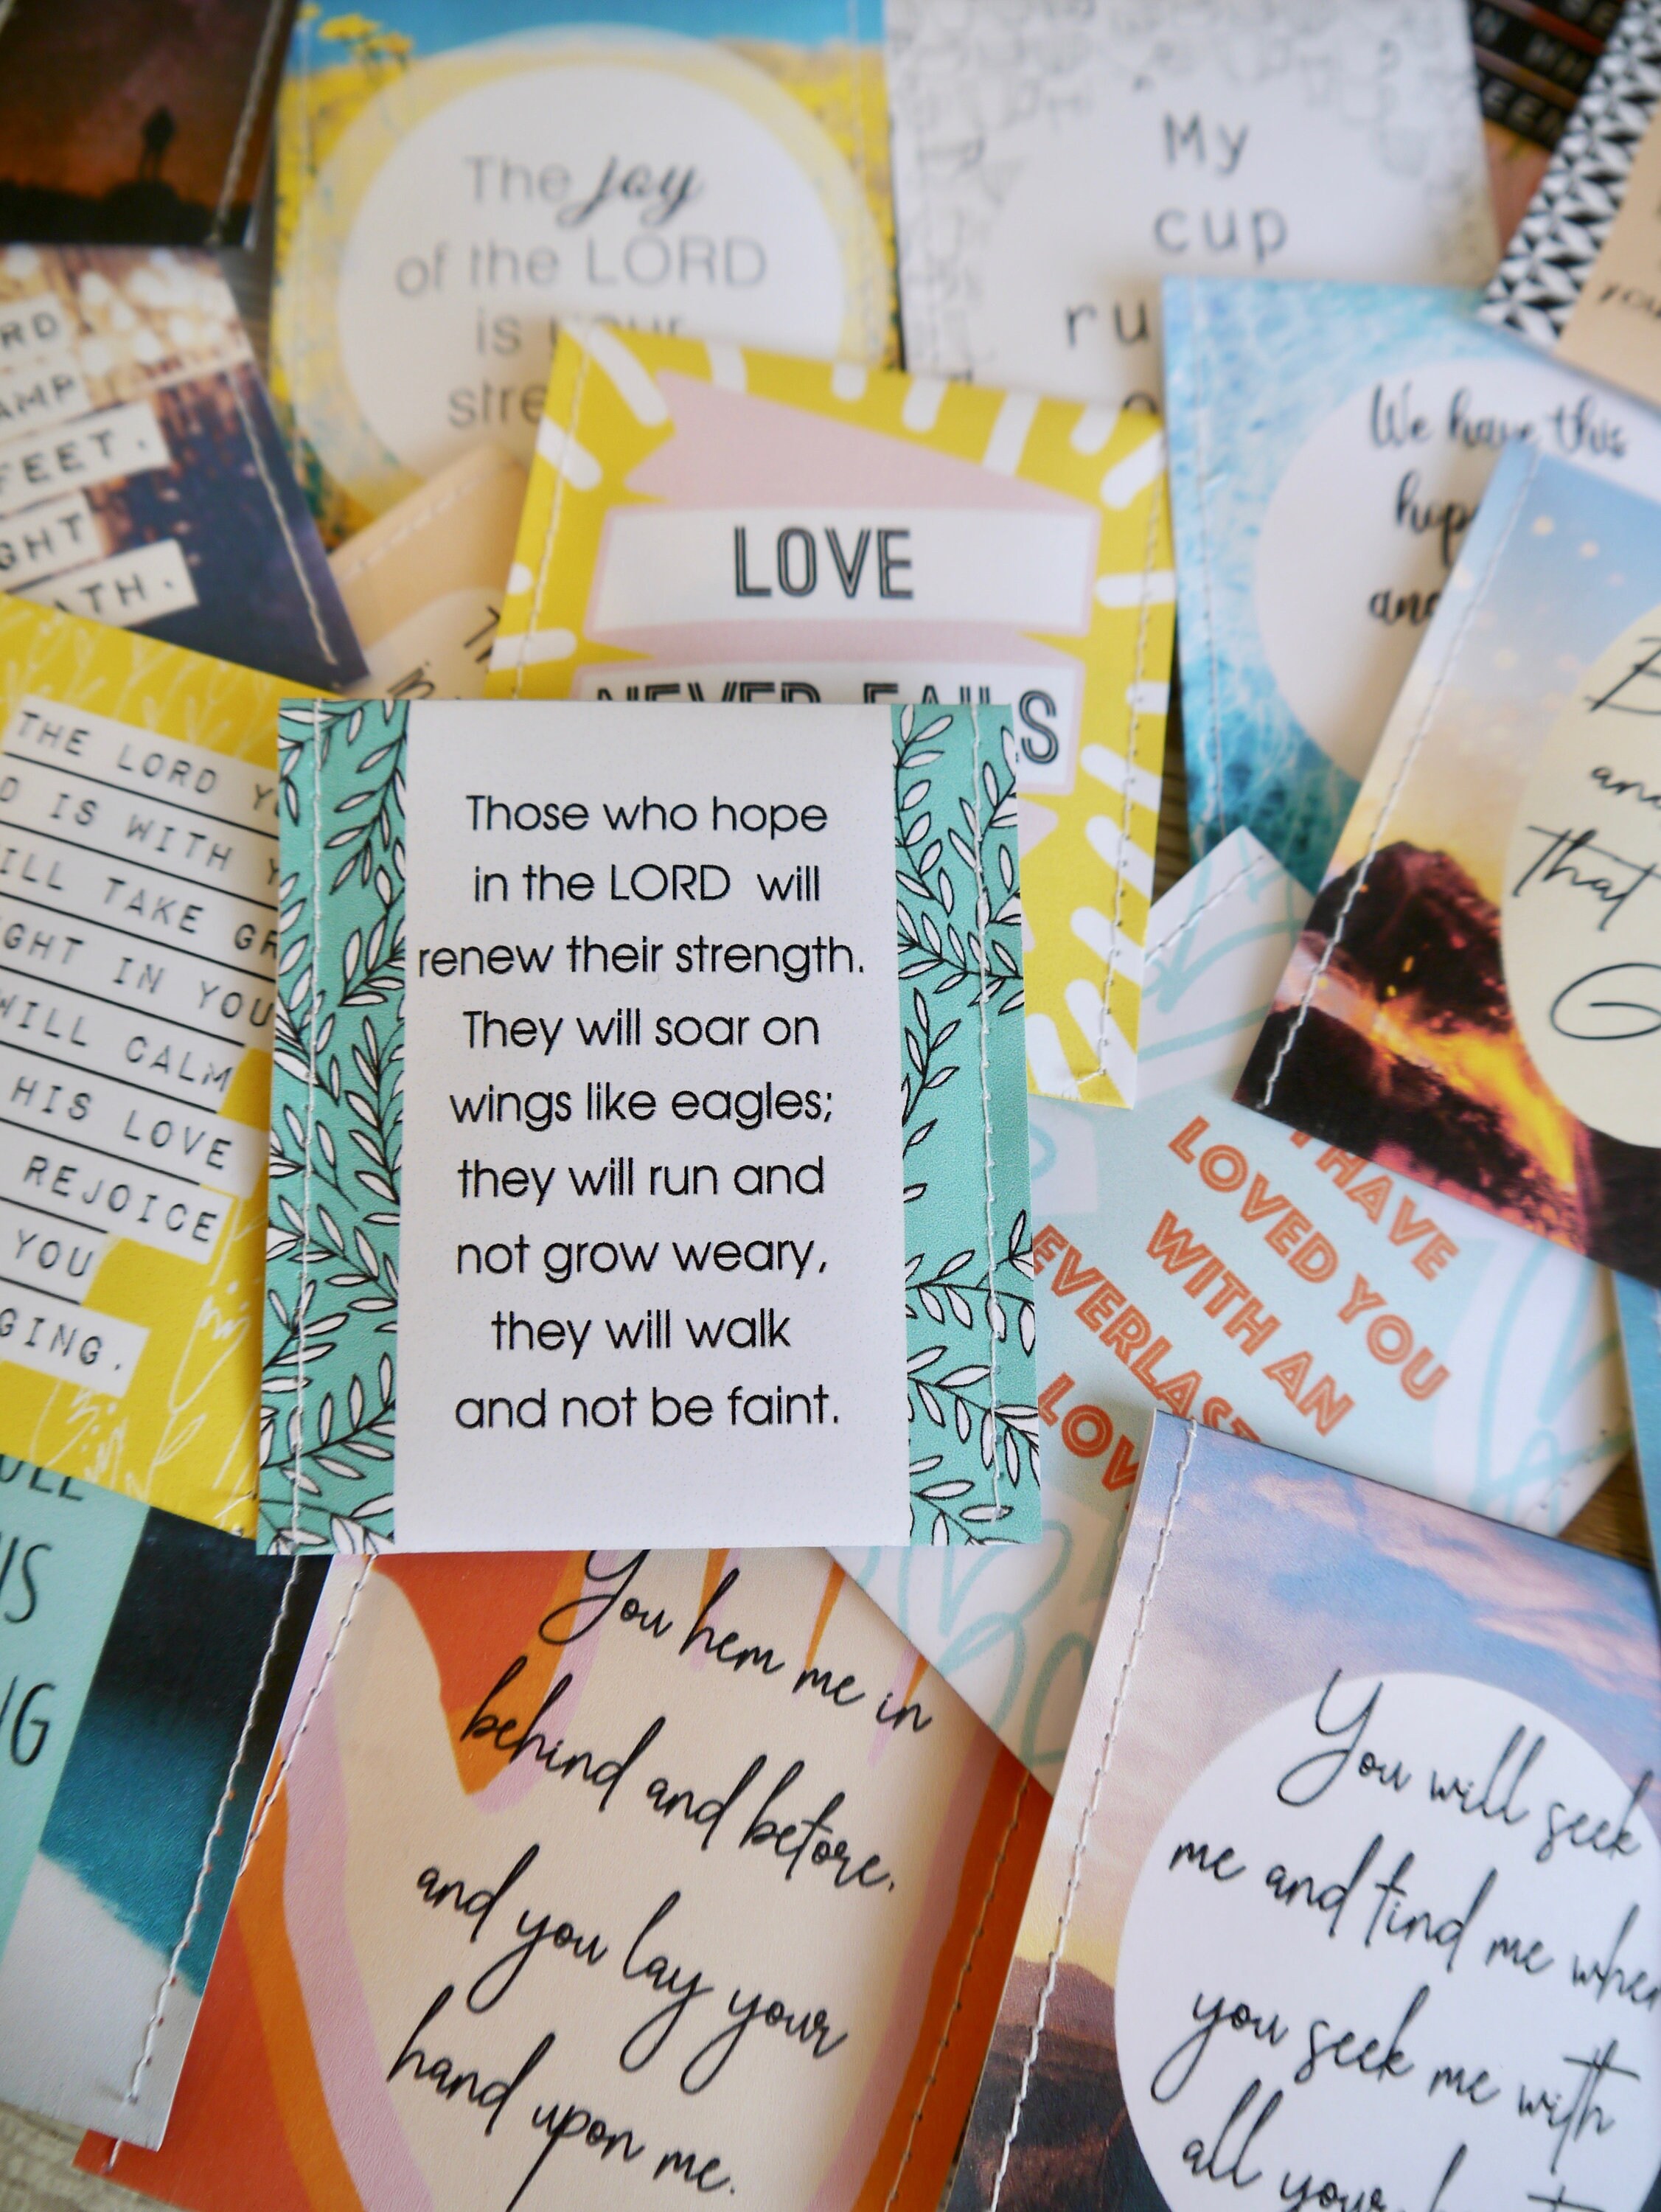 The joy
of the LORD
is your
My
cup
FEET.
We have this
LOVE
NEVER FAILS
THE LORD
IS WITH
TAKE
IN YOU
WILL CALM
HIS LOVE
REJOICE
YOU
Those who hope
in the LORD will
renew their strength.
They will soar on
wings like eagles;
they will run and
not grow weary,
they will walk
and not be faint.
and
that
I HAVE
LOVED YOU
WITH AN
You hem me in
behind and before,
and you lay your
hand upon me.
You will seek
me and find me when
you seek me with
all your